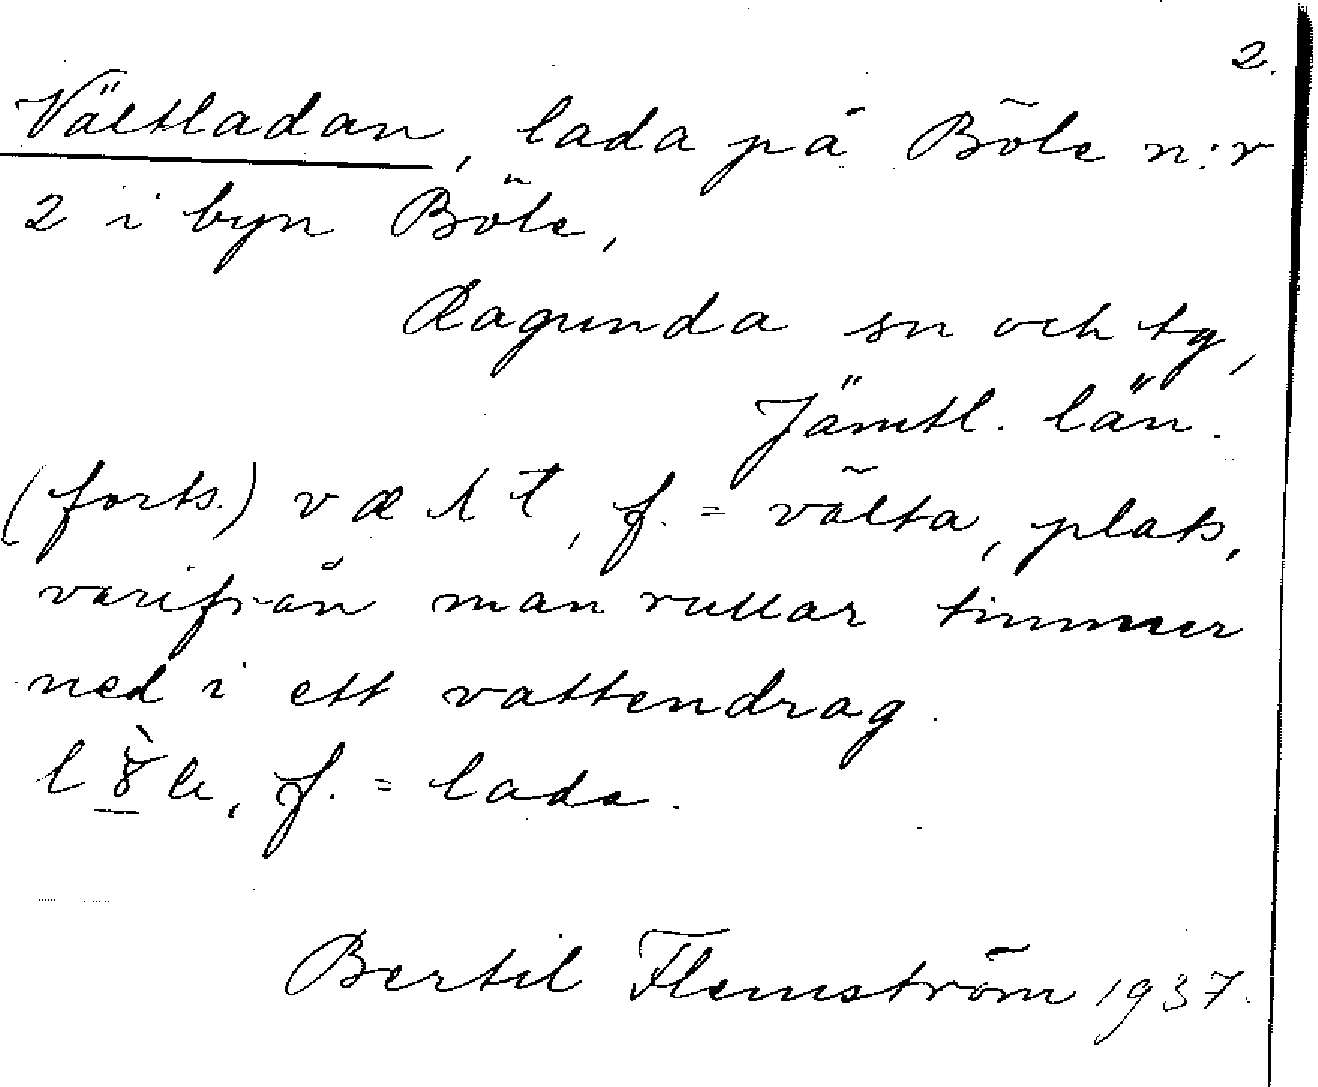 2.
Vältladan, lada på Böle n:r
2 i byn Böle,
Ragunda sn och tg,
Jämtl. län.
(forts.) f. = välta, plats,
varifrån man rullar timmer
ned i ett vattendrag.
f. = lada.
Bertil Flemström 1937.